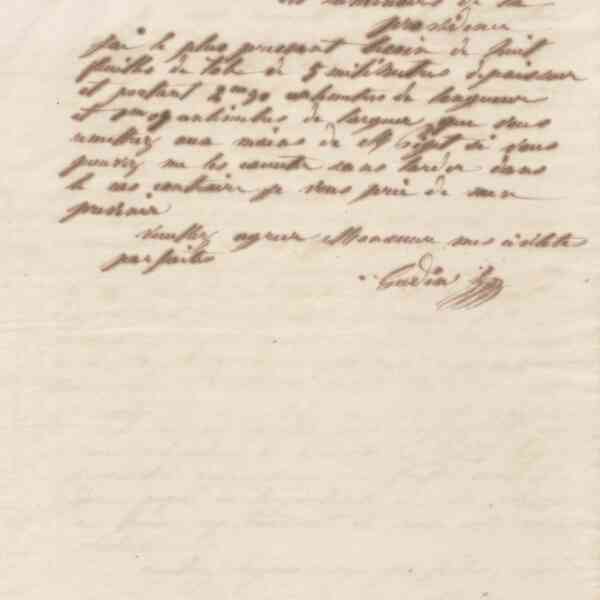 de la
providence
j'ai le plus pressant besoin de huit
feuilles de tole de 5 milimetres d'epaisseur
et portant 2m 90 centimetres de longueur
et centimetres de largeur que vous
remettrez aux mains de Mr si vous
pouvez me les envoyer sans tarder dans
le cas contraire je vous prie de men
prevenir
Veuillez agreer Monsieur mes civilités
parfaites
Gardin